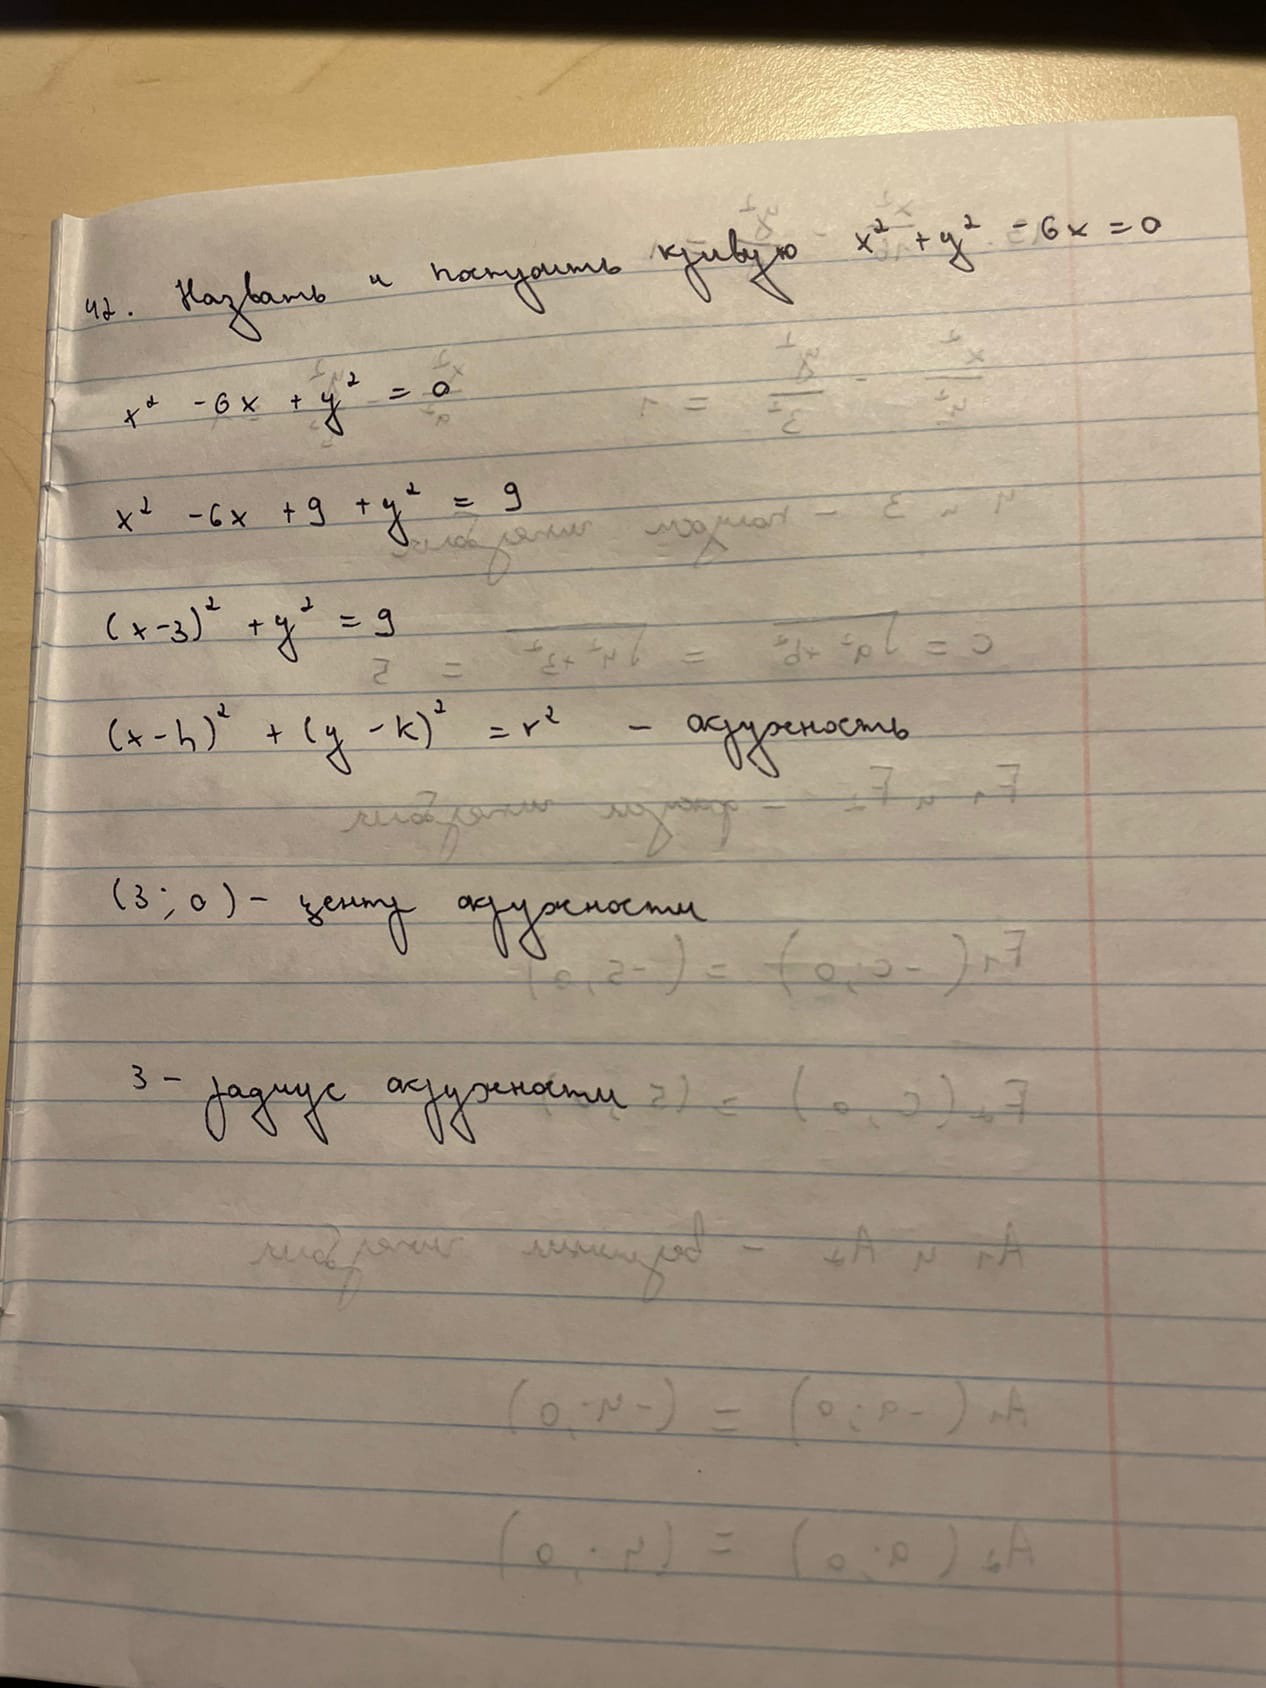 42. Назвать и построить кривую x² + y² - 6x = 0
x² - 6x + y² = 0
x² - 6x + 9 + y² = 9
(x-3)² + y² = 9
(x-h)² + (y-k)² = r² - окружность
(3; 0) - центр окружности
3 - радиус окружности